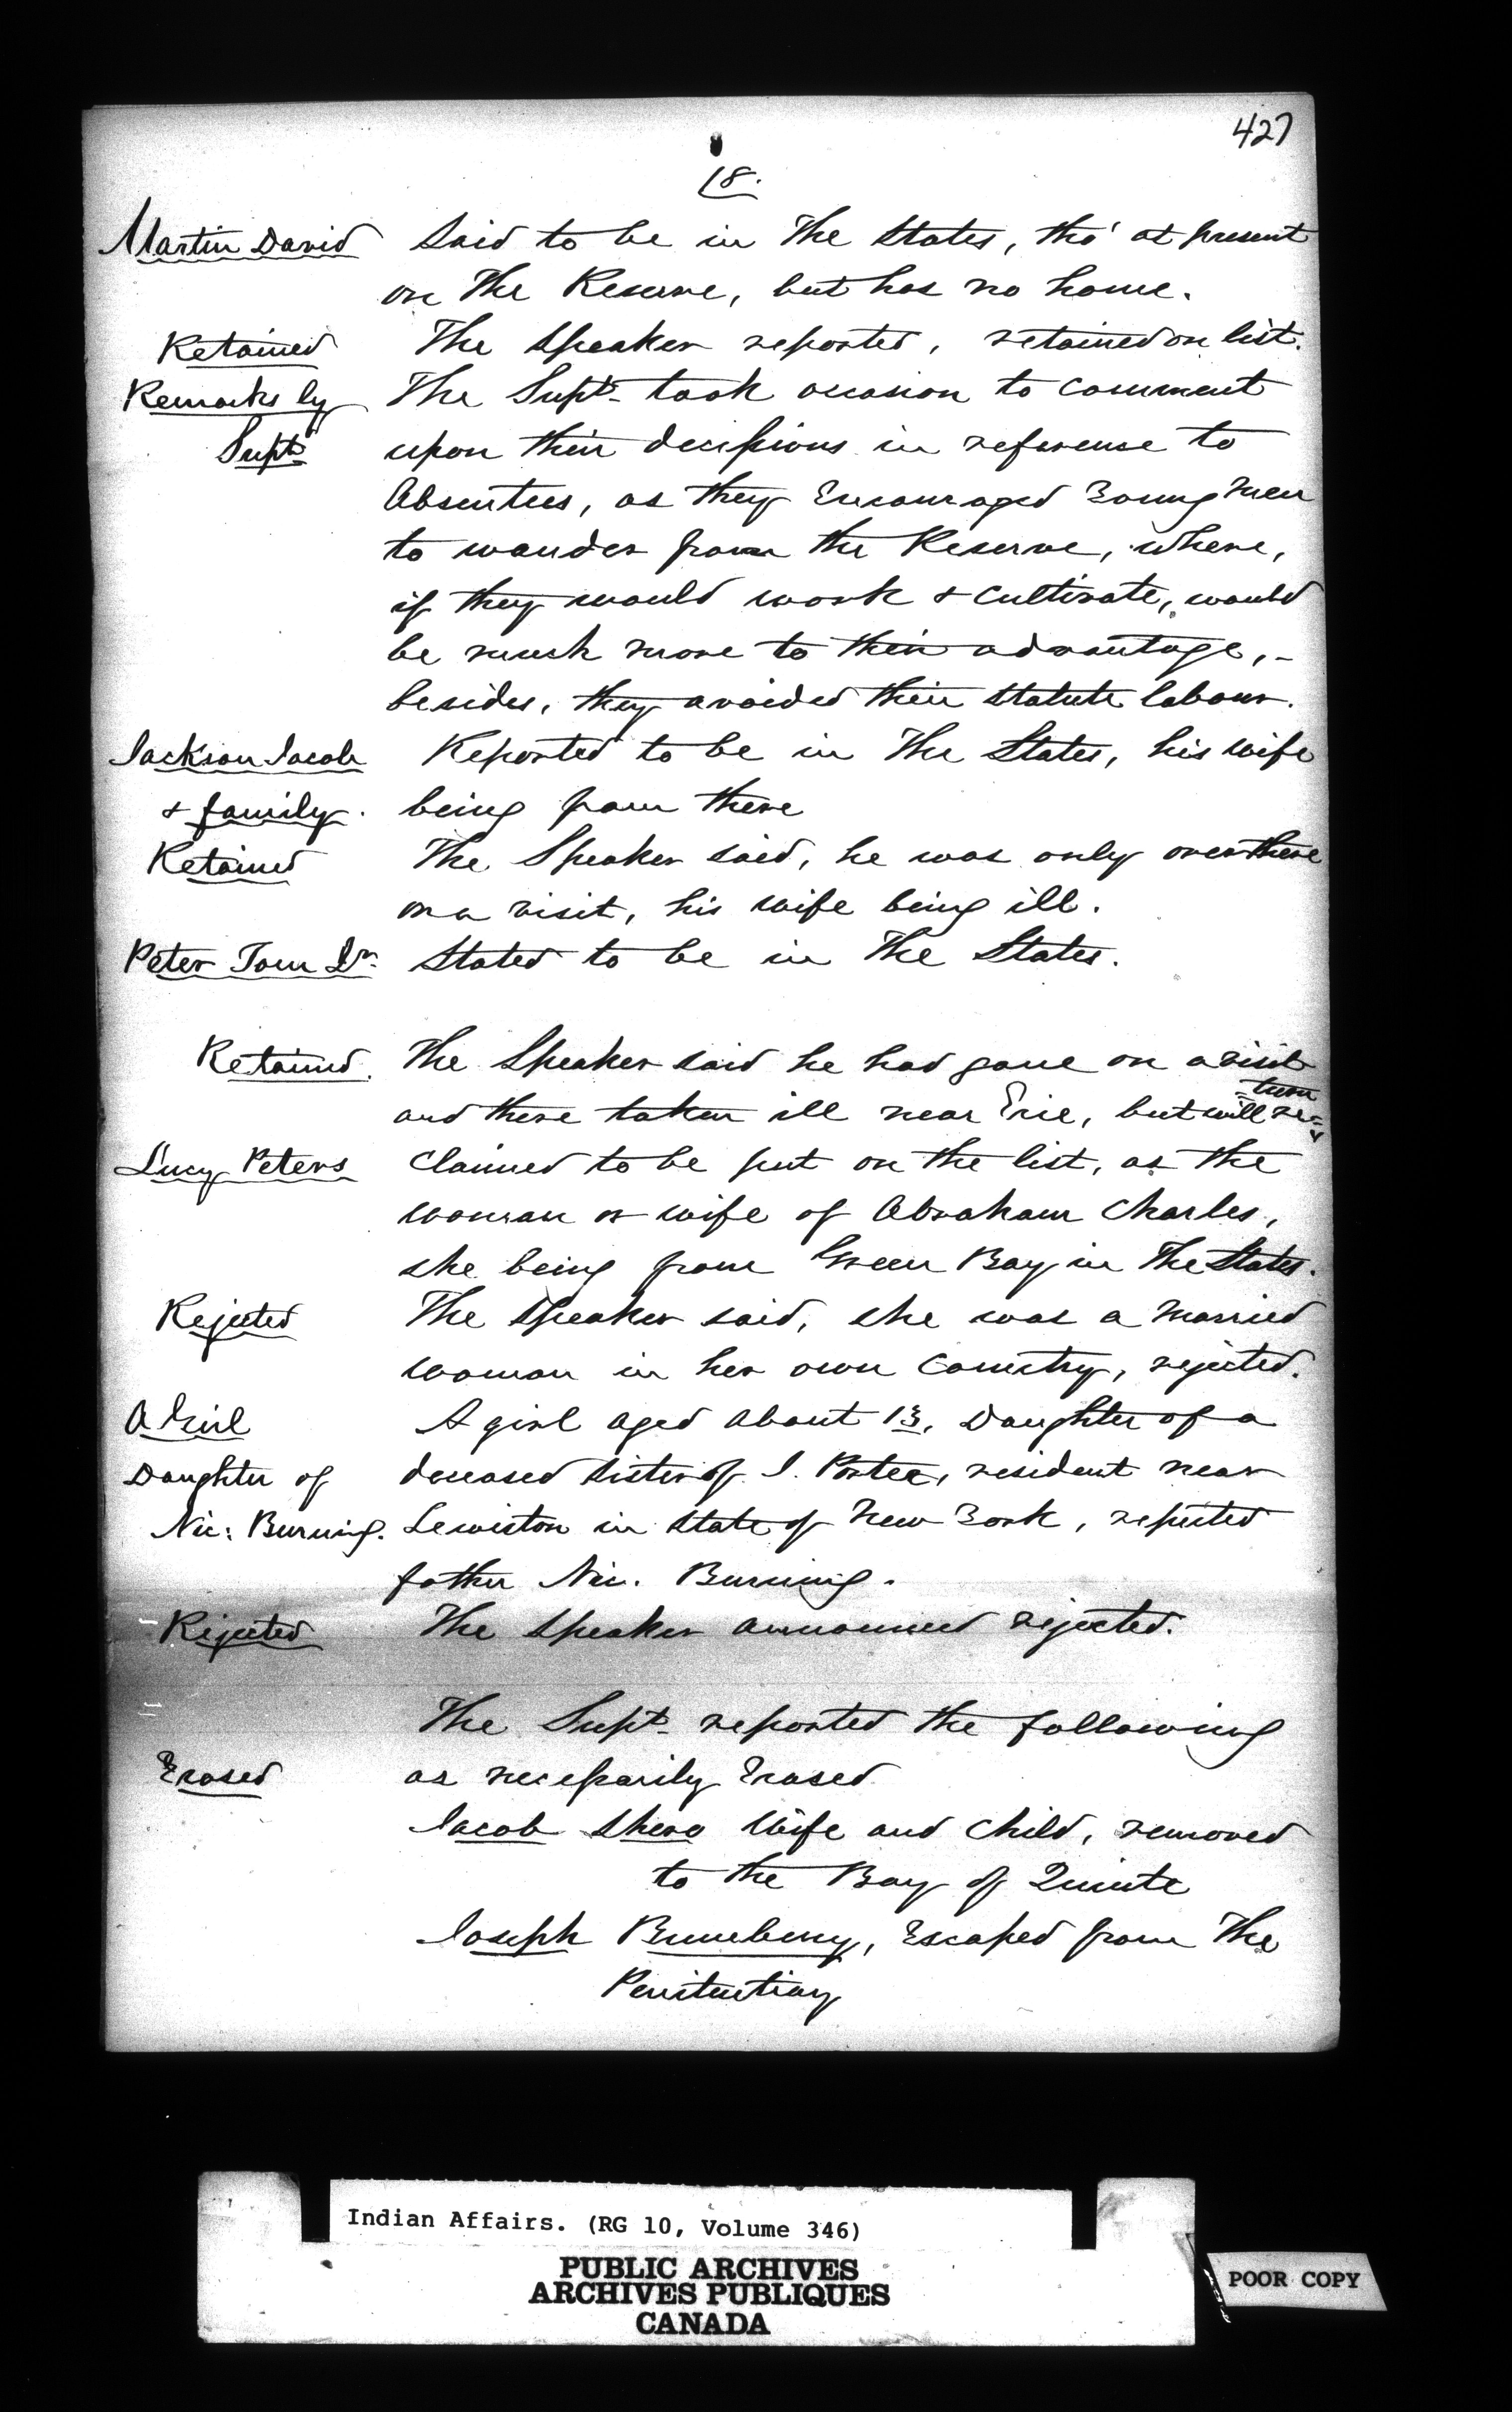 427
18.
Martin David Said to be in The States, tho' at present
on The Reserve, but has no home.
Retained The Speaker reported, retained on list.
Remarks by The Supt. took occasion to comment
Supt. upon their decisions in reference to
Absentees, as they Encouraged Young Men
to wander from the Reserve, where,
if they would work & cultivate, would
be much more to their advantage, -
besides, they avoided their statute labour.
Jackson Jacob Reported to be in The States, his wife
& family. being from there
Retained The Speaker said, he was only over there
on a visit, his wife being ill.
Peter Tom Jr. Stated to be in The States.
Retained. The Speaker said he had gone on a visit
and there taken ill near Erie, but will re=
=turn
Lucy Peters Claimed to be put on the list, as the
woman or wife of Abraham Charles,
she being from Green Bay in The States.
Rejected The Speaker said, she was a married
woman in her own Country, rejected.
A Girl A girl aged about 13, Daughter of a
Daughter of deceased sister of J. Porter, resident near
Nic: Burning. Lewiston in State of New York, reputed
father Nic. Burning.
Rejected The Speaker announced rejected.
The Supt. reported the following
Erased as necessarily Erased
Jacob Shero Wife and Child, removed
to the Bay of Quinte
Joseph , Escaped from The
Penitentiary
Indian Affairs. (RG 10, Volume 346)
PUBLIC ARCHIVES
ARCHIVES PUBLIQUES
CANADA
POOR COPY